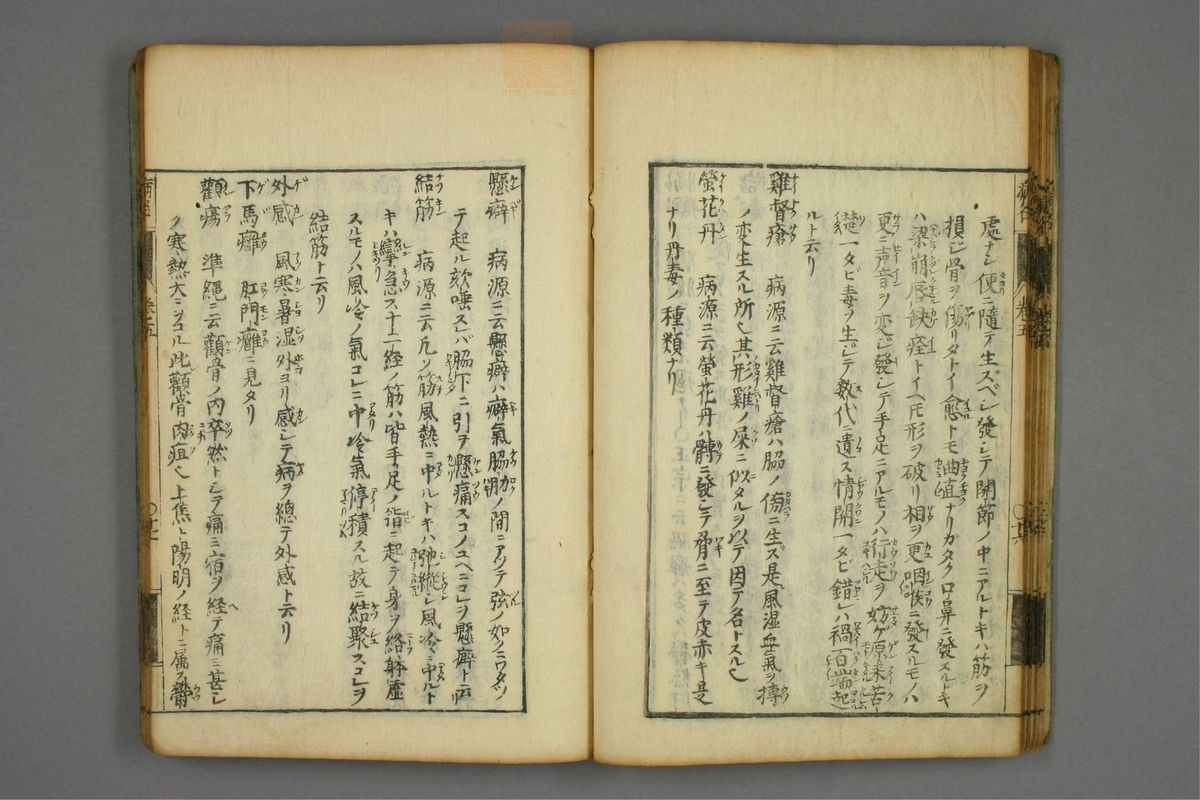 處ナシ便ニ隨テ生ズベシ發シテ関節ノ中ニアルトキハ筋ヲ
損ジ骨ヲ傷リタトイ愈トモ曲直ナリガタク口鼻ニ發スルトキ
ハ梁崩唇缺痊トイヘ𪜈形ヲ破リ相ヲ更咽喉ニ發スルモノハ
更ニ声音ヲ変シ發シテノ手足ニアルモノハ行走ヲ妨ゲ原来苦
一タビ毒ヲ生シテ数代ニ遺ス情関一タビ錯レハ禍百端起
ルト云リ
雞督瘡 病源ニ云雞督瘡ハ脇ノ傍ニ生ズ是風湿ノ氣ヲ摶
ノ変生スル所也其形雞ノ屎ニ似タルヲ以テ因テ名トスル也
螢花丹 病源ニ云螢花丹ハ髆ニ發シテ脅ニ至テ皮赤キ是
ナリ丹毒ノ種類ナリ
懸癖 病源ニ云懸癖ハ癖氣脇肋ノ間ニアツテ弦ノ如ニワタツ
テ起ル欬唾スレバ脇下ニ引ヲ懸痛スコノユヘニコレヲ懸癖ト云リ
結筋 病源ニ云凡ソ筋風熱ニ中ルトキハ弛縦シ風冷ニ中ルト
キハ攣急ス十二経ノ筋ハ皆手足ノ指ニ起テ身ヲ絡躰虚
スルモノハ風冷ノ氣コレニ中冷氣停積スル故ニ結聚スコレヲ
結筋ト云リ
外感 風寒暑湿外ヨリ感シテ病ヲ總テ外感ト云リ
下馬癰 肛門癰ニ見タリ
顴瘍 準縄ニ云顴骨ノ内卒然トシテ痛ミ宿ヲ経テ痛ミ甚シ
ク寒熱大ニヲコル此顴骨肉疽也上焦ト陽明ノ経トニ属ス欝